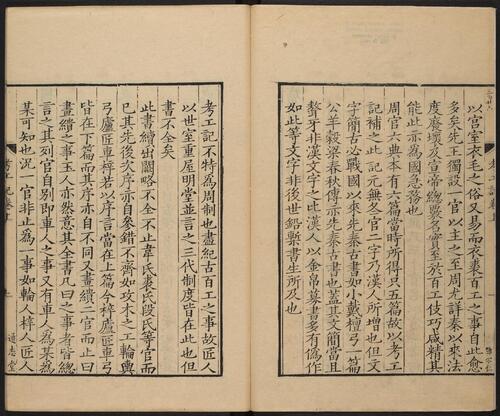 以宮室衣毛之俗又易而衣裘百工之事自此愈
多矣先王獨設一官以主之至周尤詳秦以來法
度廢壞及宣帝緫覈名實至於百工伎巧咸精其
能此亦為國急務也
周官六典本有六篇當時所得只五篇故以考工
記補之此記元無冬官二字乃漢人所增也但文
字簡古必戰國以來先秦古書如小戴檀弓一篇
公羊穀梁春秋傳亦先秦古書也葢其文簡當且
聱牙非漢文字之比漢人以金帛募書多有偽作
如此等文字非後世鉛槧書生所及也
考工記不特為周制也盡紀古百工之事故匠人
以世室重屋明堂並言之三代制度皆在此也但
書不全矣
此書續出闕略不全不止韋氏裘氏段氏等官而
已其先後次序亦自參錯不齊如攻木之工輪輿
弓廬匠車梓若以序言當在上篇今梓廬匠車弓
皆在下篇而其序亦自不同又畫繢二官而止曰
畫繢之事玉人亦然意其全書凡曰之事者皆緫
言之其列官自別即車人之事又有車人為某為
某可知也況一官非止為一事如輪人梓人匠人
通志堂